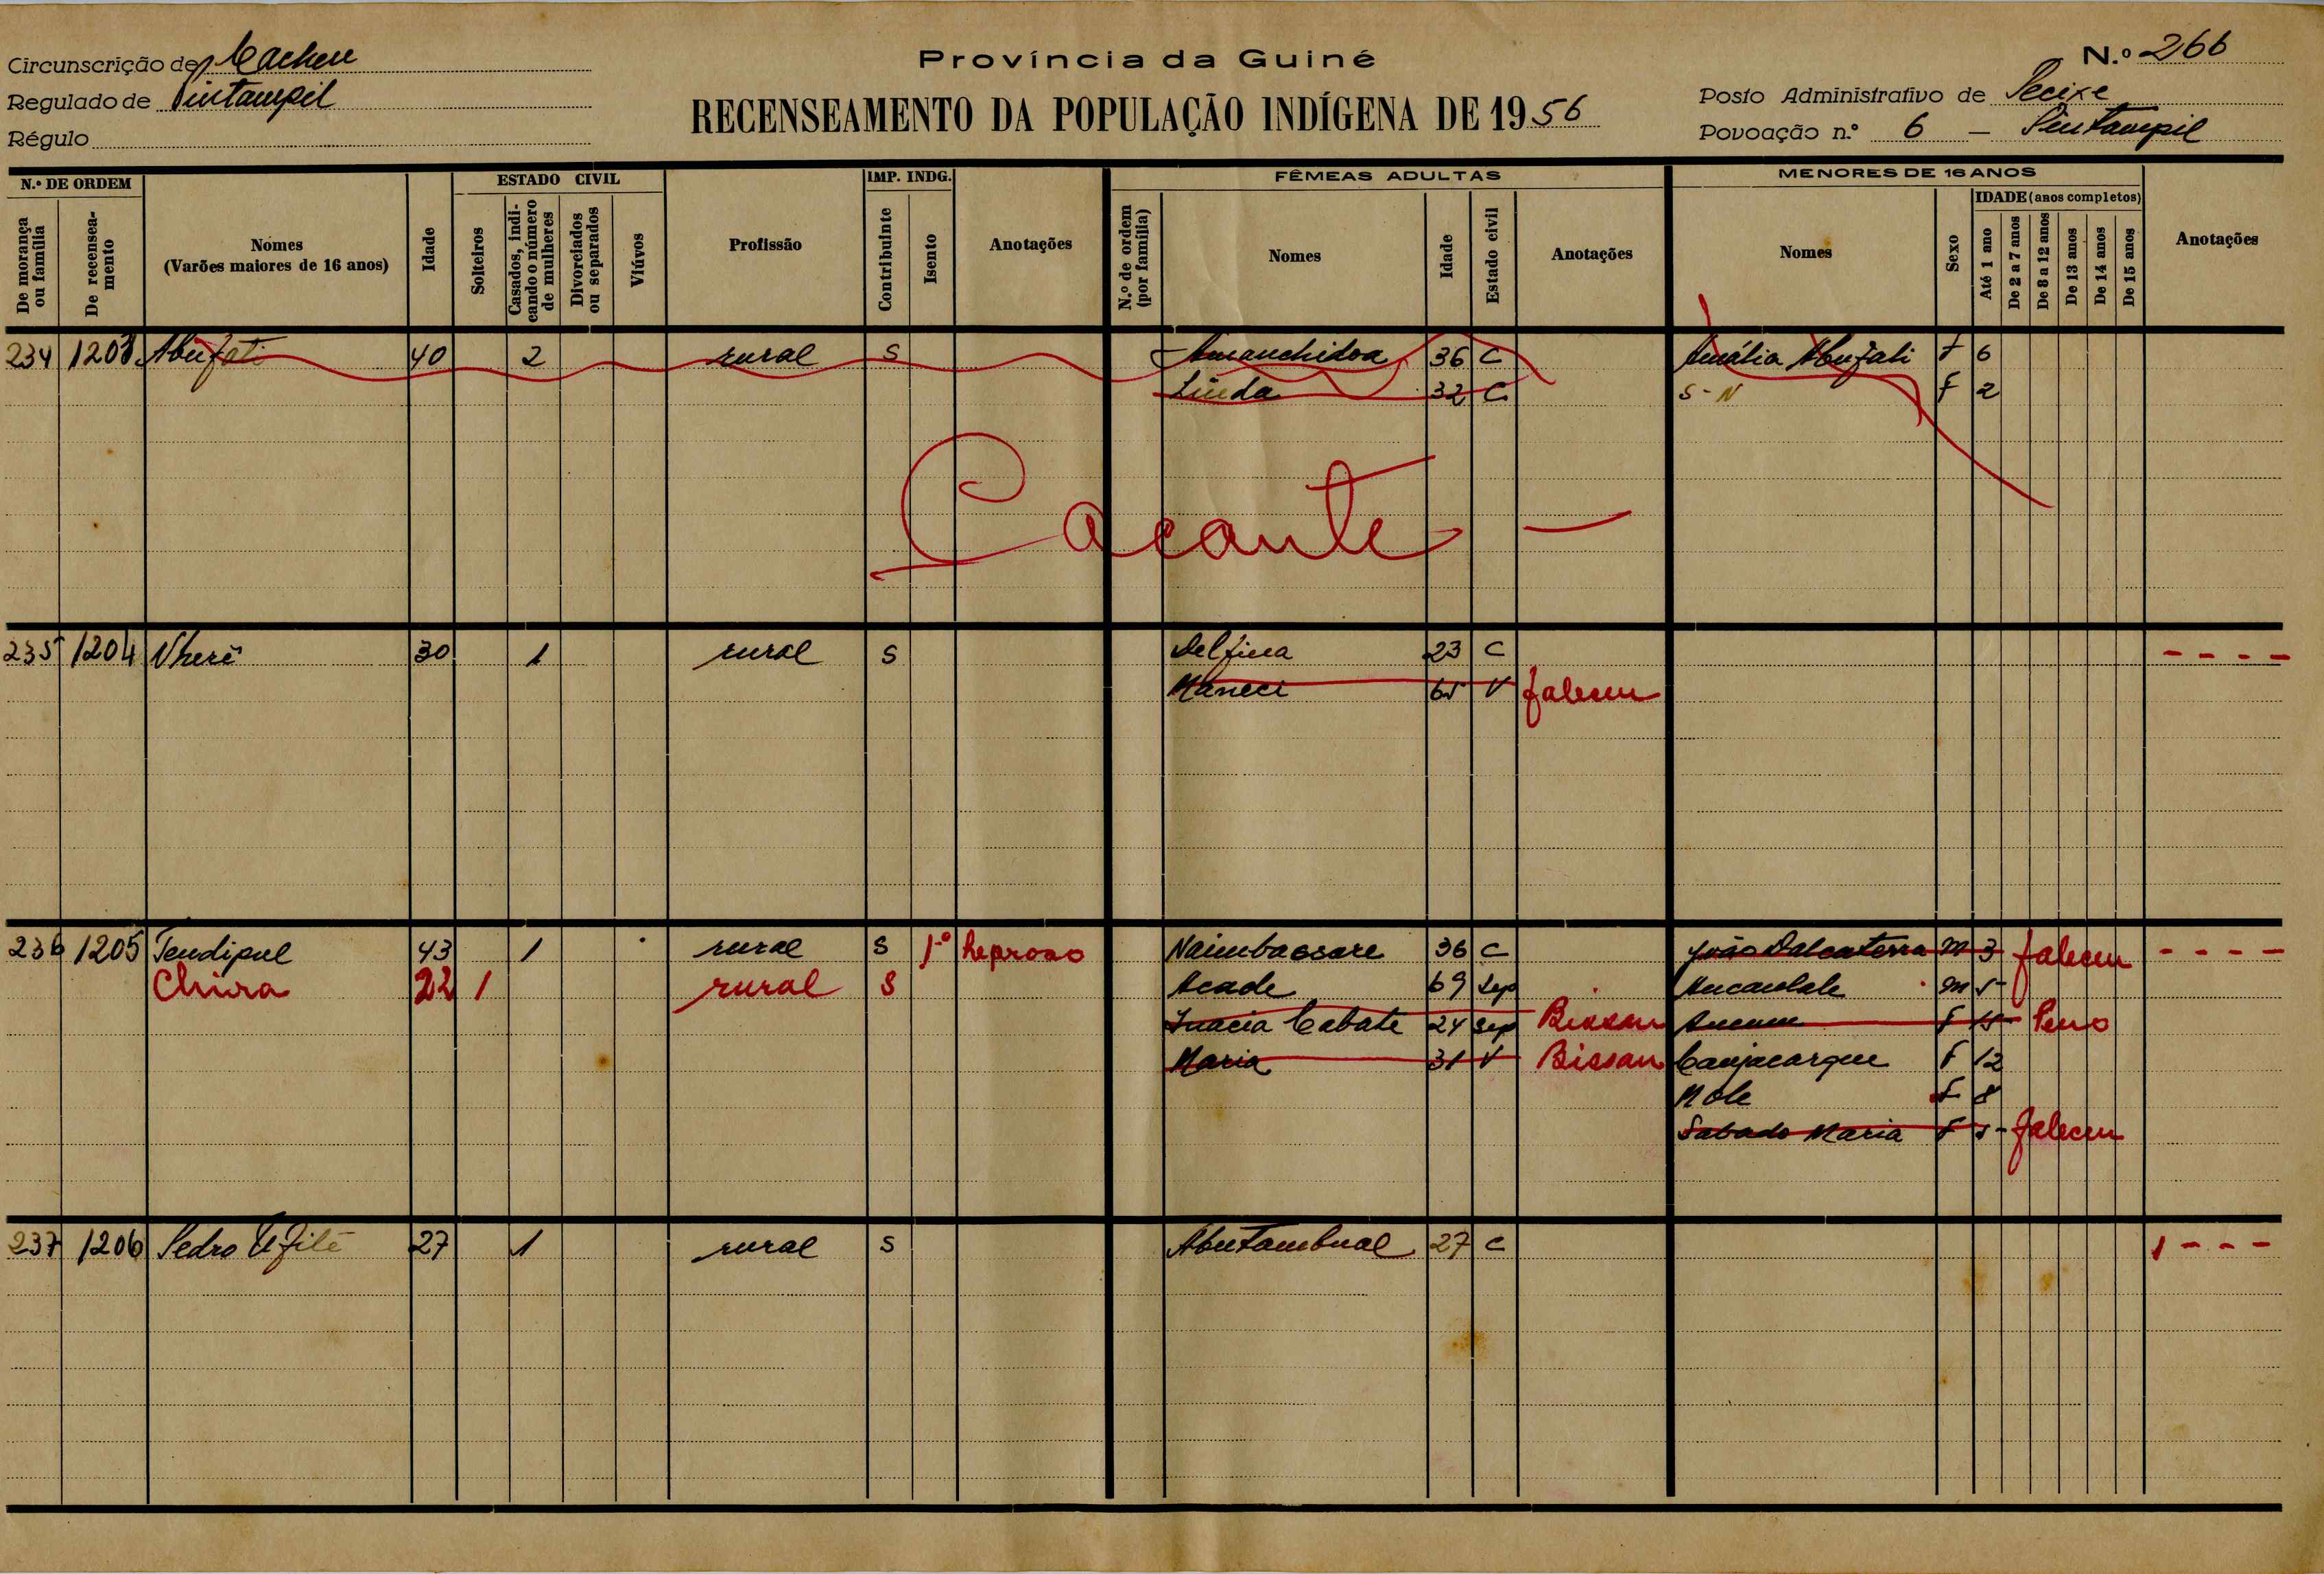 Província da Guiné
N.º 266
Circunscrição de Cacheu
Regulado de Pintampil
Régulo
RECENSEAMENTO DA POPULAÇÃO INDÍGENA DE 1956
Posto Administrativo de Pecixe
Povoação n.º 6 — Pintampil
N.º DE ORDEM
De morança ou família
De recenseamento
Nomes
(Varões maiores de 16 anos)
Idade
ESTADO CIVIL
Solteiros
Casados, indicando o número de mulheres
Divorciados ou separados
Viúvos
Profissão
IMP. INDG.
Contribuinte
Isento
Anotações
FÊMEAS ADULTAS
N.º de ordem (por família)
Nomes
Idade
Estado civil
Anotações
MENORES DE 16 ANOS
Nomes
Sexo
IDADE (anos completos)
Até 1 ano
De 2 a 7 anos
De 8 a 12 anos
De 13 anos
De 14 anos
De 15 anos
Anotações
234 1203 Abufati 40 2 rural S Amanchidoa 36 C Amália Abufati F 6
Linda 32 C S-N F 2
Cacante —
235 1204 Nherê 30 1 rural S Delfina 23 C - - - -
Maneci 65 V faleceu
236 1205 Tendipul 43 1 rural S 1º Leproso Naimbassare 36 C João Dalcaterra M 3 faleceu - - - -
Chira 22 1 rural S Acade 69 Sep M 5
Inacia Cabate 24 Sep Bissau F 15
Maria 31 V Bissau Canjacarque F 12
Nole F 8
Sabado Maria F 5 - faleceu
237 1206 Pedro Ufilé 27 1 rural S Abutambual 27 C 1 - - -